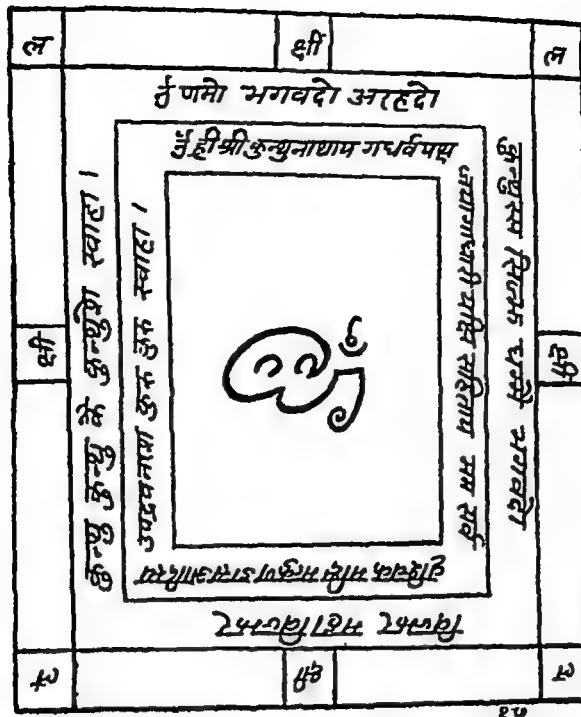 ल क्षीं ल
ॐ णमो भगवदो अरहदो
कुन्थुस्स सिज्झ धम्मे भगवदो
विज्झर महाविज्झर
कुन्थु कुन्थु के कुन्थुेश स्वाहा।
ॐ ह्रीं श्री कुन्थुनाथाय गधर्वयक्ष
सहिताय मम सर्व
उपद्रवनाश कुरु कुरु स्वाहा।
क्षीं
क्षीं
ल क्षीं ल